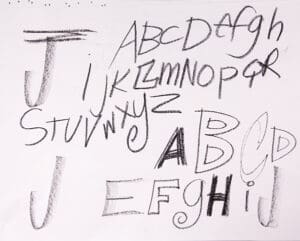 J ABCDefgh
IjKLMNOPQR
STUVwxyZ
ABCD
J EFgHiJ